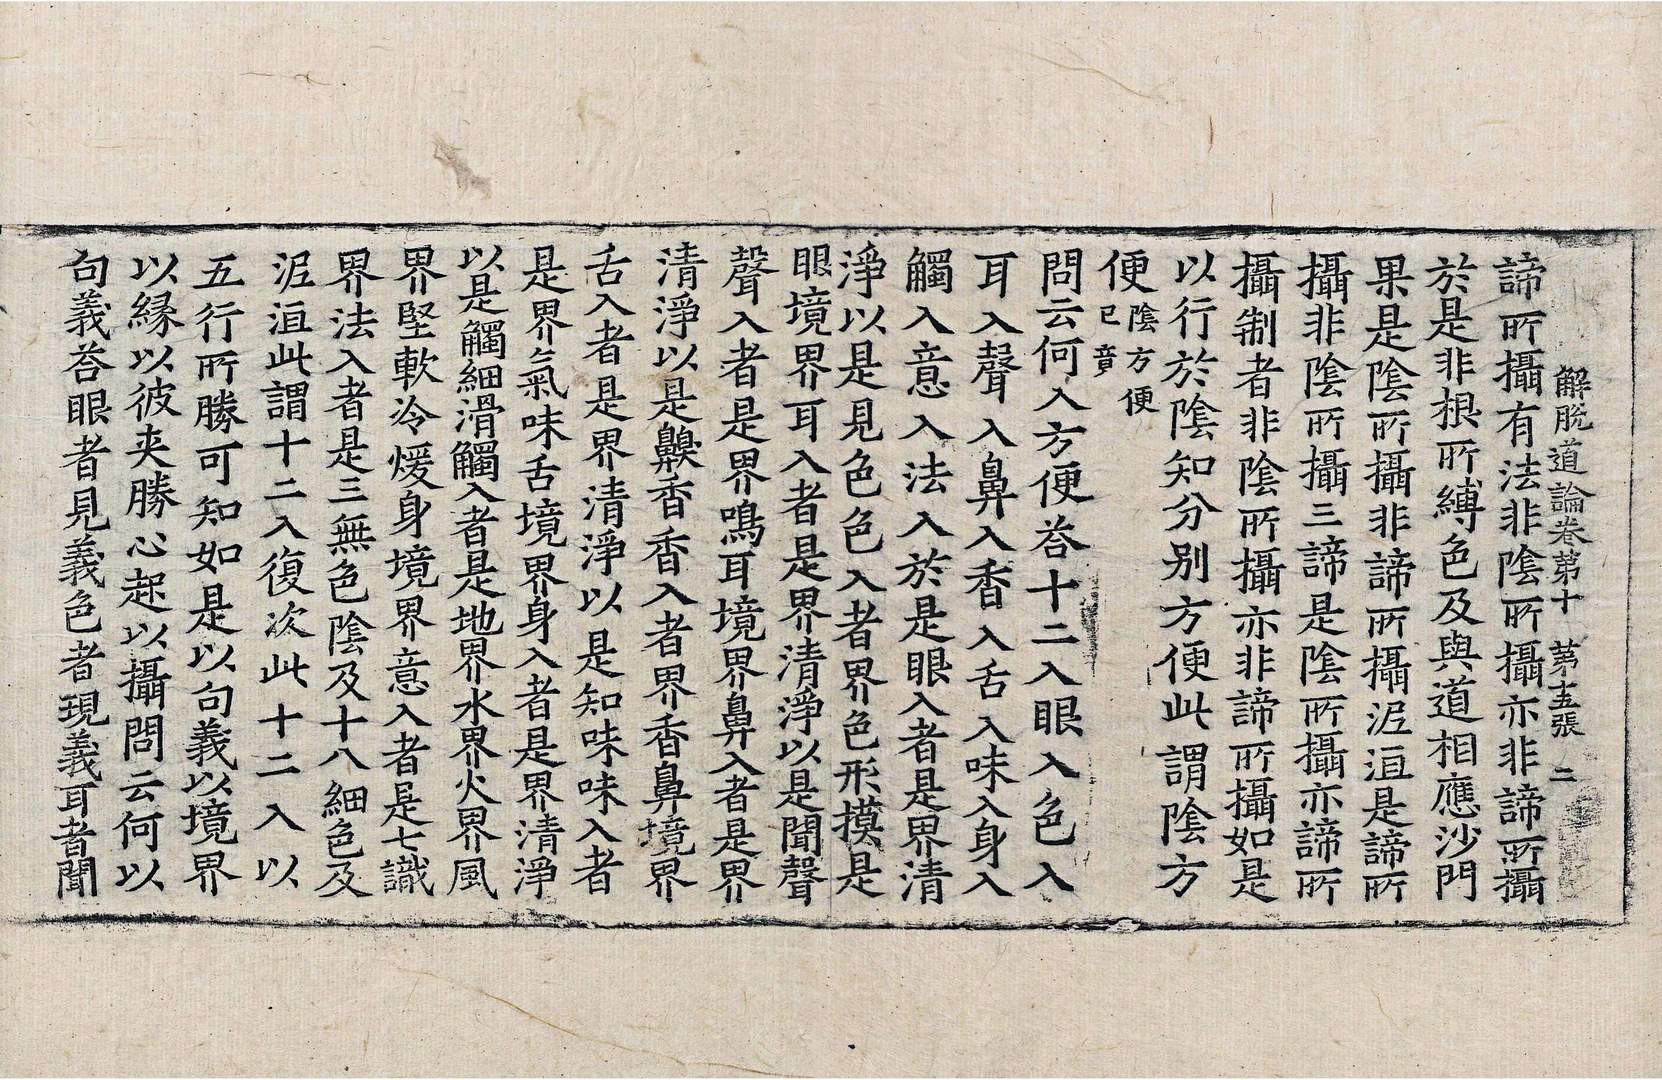 解脫道論卷第十　第十五張　二
諦所攝有法非陰所攝亦非諦所攝
於是非根所縛色及與道相應沙門
果是陰所攝非諦所攝泥洹是諦所
攝非陰所攝三諦是陰所攝亦諦所
攝制者非陰所攝亦非諦所攝如是
以行於陰知分別方便此謂陰方
便陰方便已竟
問云何入方便荅十二入眼入色入
耳入聲入鼻入香入舌入味入身入
觸入意入法入於是眼入者是界清
淨以是見色色入者界色形摸是
眼境界耳入者是界清淨以是聞聲
聲入者是界鳴耳境界鼻入者是界
清淨以是齅香香入者界香鼻境界
舌入者是界清淨以是知味味入者
是界氣味舌境界身入者是界清淨
以是觸細滑觸入者是地界水界火界風
界堅軟冷煖身境界意入者是七識
界法入者是三無色陰及十八細色及
泥洹此謂十二入復次此十二入以
五行所勝可知如是以句義以境界
以緣以彼夾勝心起以攝問云何以
句義荅眼者見義色者現義耳者聞